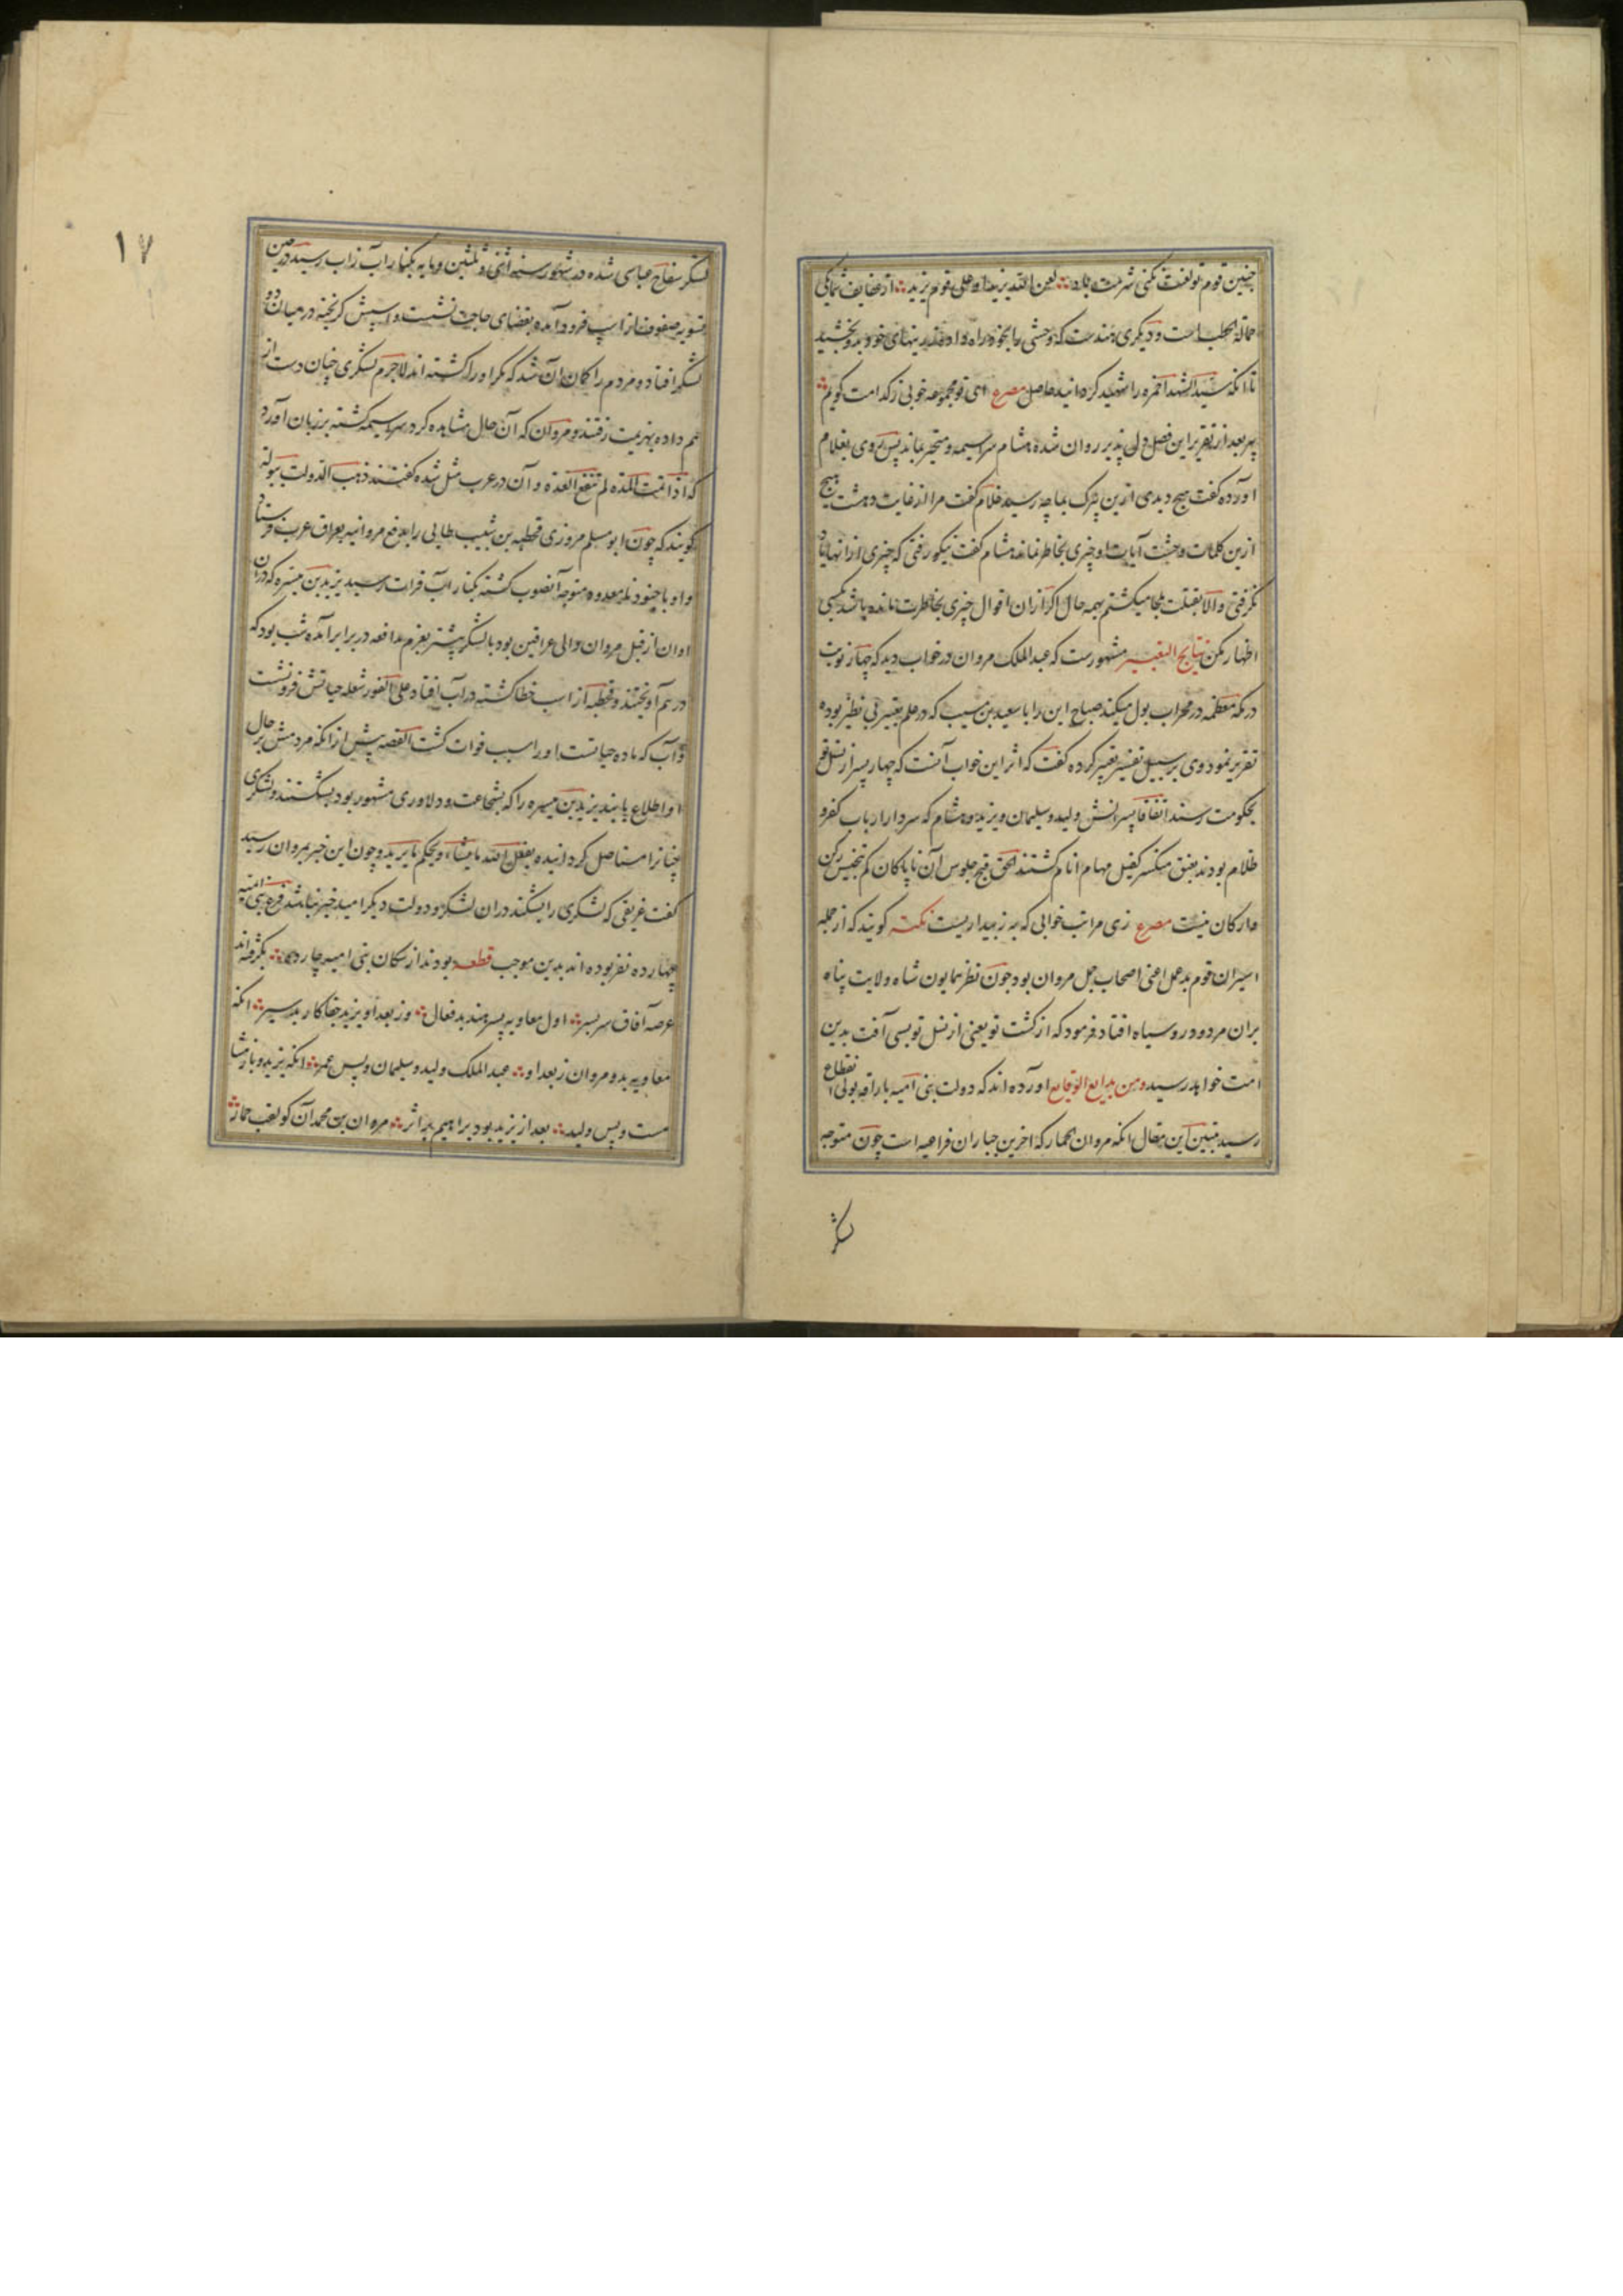 چنین قوم تو لعنت نکنی شرمت باد لعن الله یزیدا و علی قوم یزید از عفایف شما یکی
حمالة الحطب است و دیگری هندست که وحشی را بخود راه داد و بدو بخشید
تا آنکه سید الشهدا حمزه را شهید کردانید حاصل مصرع ای تو مجموعه خوبی ز کدامت کویم
پیر بعد از تقریر این فصل دل پذیر روان شده هشام سراسیمه و متحیر بماند پس روی بغلام
آورده کفت هیچ دیدی ازین پیرک بما چه رسید غلام کفت مرا از غایت دهشت هیچ
ازین کلمات وحشت آیات او چیزی بخاطر نماند هشام کفت نیکو رفتی که چیزی ازانها یاد
نکرفتی والا بقتلت میکشتم بهمه حال اکر ازان اقوال چیزی بخاطرت مانده باشد بکسی
اظهار مکن نتایج التعبیر مشهورست که عبد الملک مروان در خواب دید که چهار نوبت
در مکه معظمه در محراب بول میکند صباح این را با سعید بن مسیب که در علم تعبیر بی نظیر بوده
تقریر نمود وی بر سبیل تفسیر تعبیر کرده کفت که اثر این خواب آنست که چهار پسر از نسل تو
بحکومت رسند اتفاقا پسرانش ولید و سلیمان و یزید و هشام که سردار ارباب کفر و
ظلام بودند بعنق منکسر کفیل مهام انام کشتند الحق قبح جلوس آن ناپاکان کم تنجیس رکن
وارکان نیست مصرع زی مراتب خوابی که به ز بیداریست نکته کویند که از جمله
اسیران قوم بد عمل اعنی اصحاب جمل مروان بود چون نظر همایون شاه ولایت پناه
بران مردود رو سیاه افتاد فرمود که از کشت تو یعنی از نسل تو بسی آفت بدین
امت خواهد رسید و من بدایع الوقایع آورده اند که دولت بنی امیه باراقه بولی انقطاع
رسید مبین این مقال آنکه مروان الحمار که آخرین جباران فراعنه است چون متوجه
لشکر
۱۷
لشکر سفاح عباسی شده در شهور سنه اثنی و ثلثین و مایه بکنار آب زاب رسید در حین
تسویه صفوف از اسپ فرود آمده بقضای حاجت نشست و اسپش کریخته در میان دو
لشکر افتاد و مردم را کمان آن شد که مکر او را کشته اند لاجرم لشکری چنان دست از
هم داده بهزیمت رفتند و مروان که آن حال مشاهده کرد سراسیمه کشته بر زبان آورد
که اذا تمت المدة لم تنفع العدة و آن در عرب مثل شده کفتند ذهب الدولت ببوله
کویند که چون ابو مسلم مروزی قحطبه بن شبیب طایی را بدفع مروانیه بعراق عرب فرستاد
و او با جنود نامعدود متوجه آنصوب کشته بکنار آب فرات رسید یزید بن میسره که دران
اوان از قبل مروان والی عراقین بود با لشکر بیشتر بعزم مدافعه در برابر آمده شب بود که
در هم آویختند و قحطبه از اسپ خطا کشته در آب افتاد علی الفور شعله حیاتش فرو نشست
و آب که ماده حیاتست او را سبب فوات کشت القصه پیش از انکه مردمش بر حال
او اطلاع یابند یزید بن میسره را که بشجاعت و دلاوری مشهور بود بشکستند و لشکری
چنانرا مستاصل کردانیده یفعل الله ما یشاء و یحکم ما یرید و چون این خبر بمروان رسید
کفت غریقی که لشکری را بشکند دران لشکر و دولت دیکر امید خیر نباشد فرعنه بنی امیه
چهارده نفر بوده اند بدین موجب قطعه بودند از سکان بنی امیه چارده بکرفته اند
عرصه آفاق سر بسر اول معاویه پسر هند بد فعال وز بعد او یزید جفا کار بد سیر آنکه
معاویه بد و مروان ز بعد او عبد الملک ولید و سلیمان و پس عمر آنکه یزید و باز هشا
مست و پس ولید بعد از یزید بود براهیم بد اثر مروان بن محمد آن کو لقب حمار